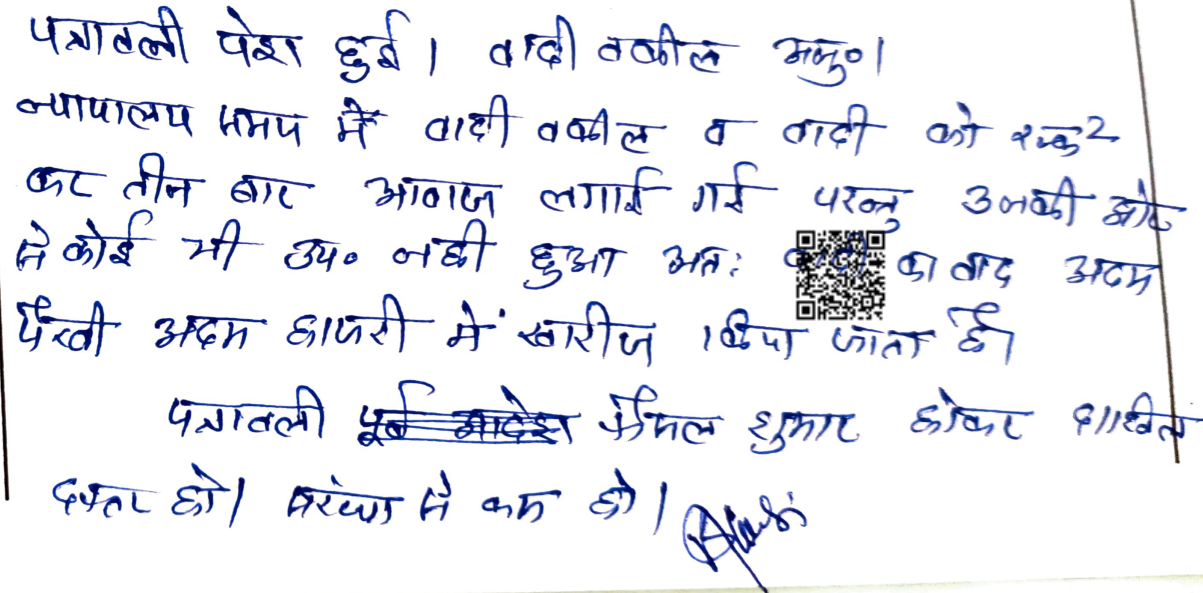 पत्रावली पेश हुई। वादी वकील अनु०।
न्यायालय समय में वादी वकील व वादी को रुक २
कर तीन बार आवाज लगाई गई परन्तु उनकी ओर
से कोई भी उप० नही हुआ अतः का वाद अदम
पैरवी अदम हाजरी में खारीज किया जाता है।
पत्रावली फैसल शुमार होकर दाखिल
दफ्तर हो। संख्या से कम हो।